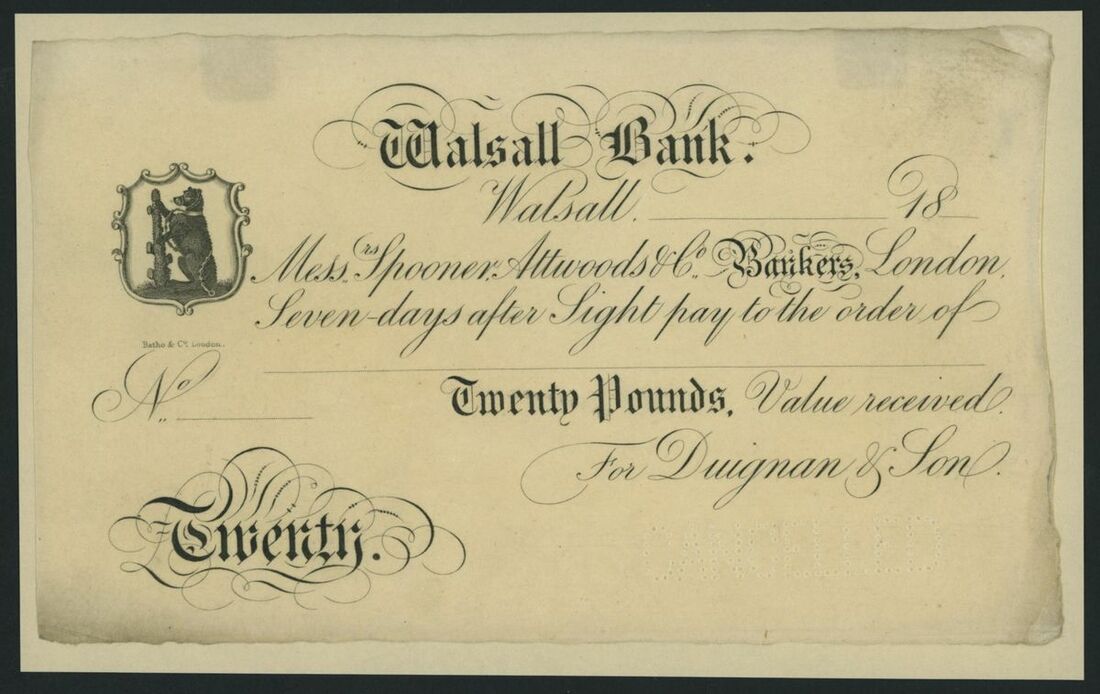 Walsall Bank.
Walsall. 18
Messrs. Spooner, Attwoods & Co. Bankers, London,
Seven-days after Sight pay to the order of
Batho & Co. London.
No.
Twenty Pounds, Value received.
For Duignan & Son.
Twenty.